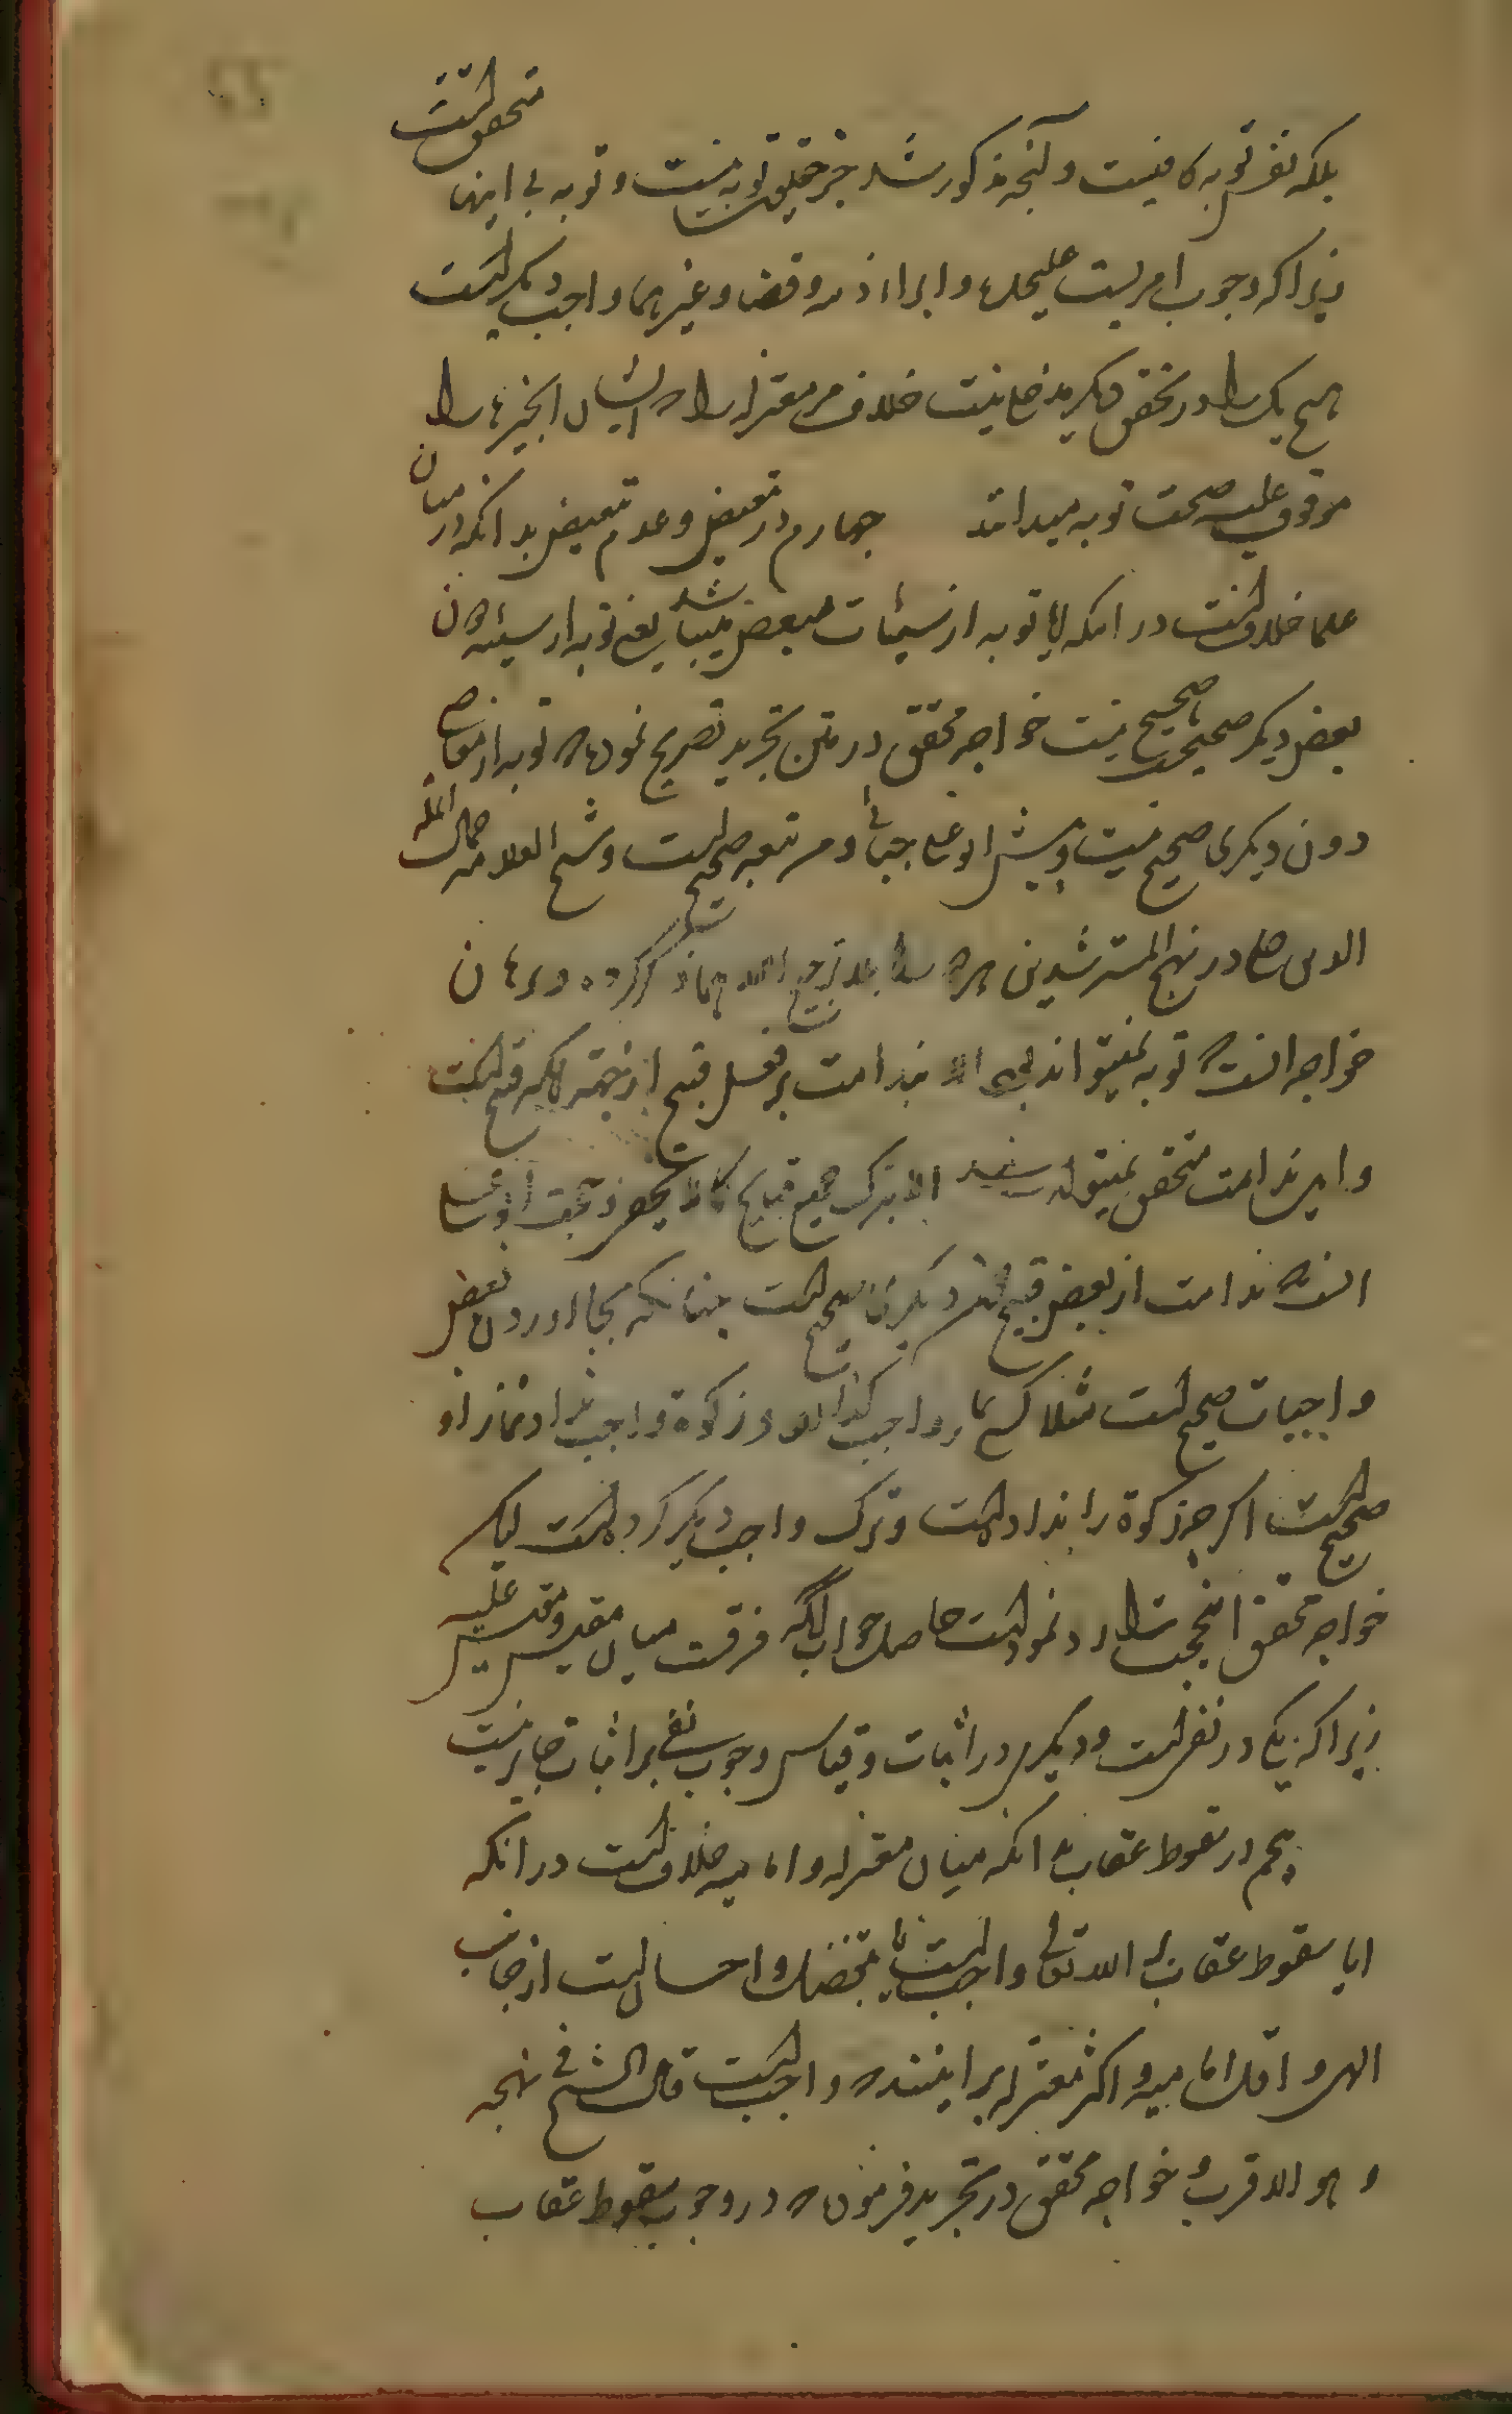 بلکه نفس توبه کافیست و آنچه مذکور شد جزء حقیقت توبه نیست و توبه بی اینها متحقق است
زیرا که وجوب امریست علیحده و ابراء ذمه و قضا و غیرهما واجب دیگر است
هیچ یک را در تحقق دیگر مدخل نیست خلاف مر معتزله را که ایشان این چیزها را
موقوف علیه صحت توبه میدانند چهارم در تبعیض و عدم تبعیض بدانکه در میان
علما خلافست در انکه ایا توبه از سیئات مبعض میباشد یعنی توبه از سیئه دون
بعض دیگر صحیحست یا صحیح نیست خواجه محقق در متن تجرید تصریح نموده که توبه از معاصی
دون دیگری صحیح نیست و پیش ابو علی جبائی و من تبعه صحیح است و شیخ العلامه جمال المله
الدین در نهج المسترشدین هر دو را بلا ترجیح ذکر کرده و برهان
خواجه انست که توبه نمیتواند بود الا ندامت بر فعل قبیح از جهته انکه قبیح است
و این ندامت متحقق نمیتواند شد الا بترک جمیع قبایح کما لا یخفی و حجت ابو علی
انست که ندامت از بعض قبیح دون دیگری صحیح است چنانکه بجا اوردن بعض
واجبات صحیح است مثلا کسی نماز واجب گذارد و زکوة واجب نداد نماز او
صحیح است اگر چه زکوة را نداده است و ترک واجب دیگر کرده است لیکن
خواجه محقق این حجت را رد نموده است حاصل جواب انکه فرقست میان مقیس و مقیس علیه
زیرا که یکی در نفی است و دیگری در اثبات و قیاس وجوب نفی بر اثبات جایز نیست
پنجم در سقوط عقاب بدانکه میان معتزله و امامیه خلاف است در انکه
ایا سقوط عقاب بر الله تعالی واجب است یا تفضل و احسان است از جانب
الهی و اقل امامیه و اکثر معتزله بر اینند که واجب است قال الشیخ فی نهجه
و هو الاقرب خواجه محقق در تجرید فرموده که در وجوب سقوط عقاب